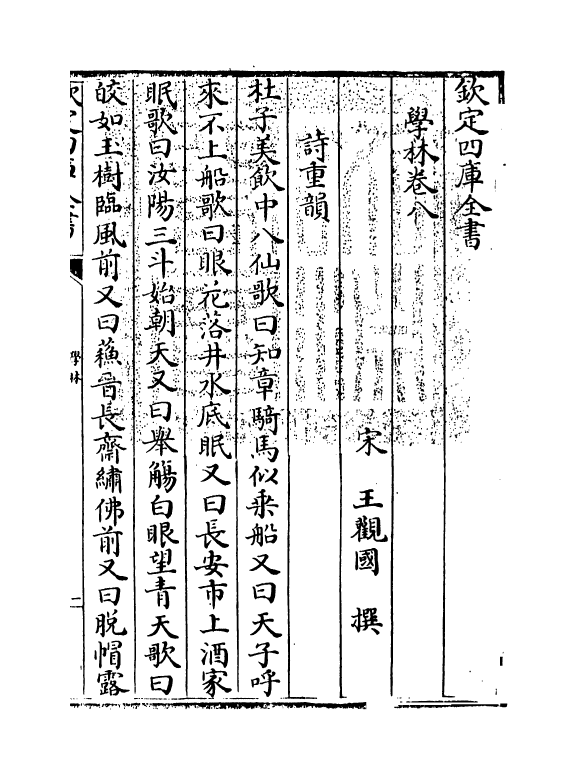 欽定四庫全書
學林卷八
宋 王觀國 撰
詩重韻
杜子美飲中八仙歌曰知章騎馬似乘船又曰天子呼
來不上船歌曰眼花落井水底眠又曰長安市上酒家
眠歌曰汝陽三斗始朝天又曰舉觴白眼望青天歌曰
皎如玉樹臨風前又曰蘇晉長齋繡佛前又曰脱帽露
欽定四庫全書
學林